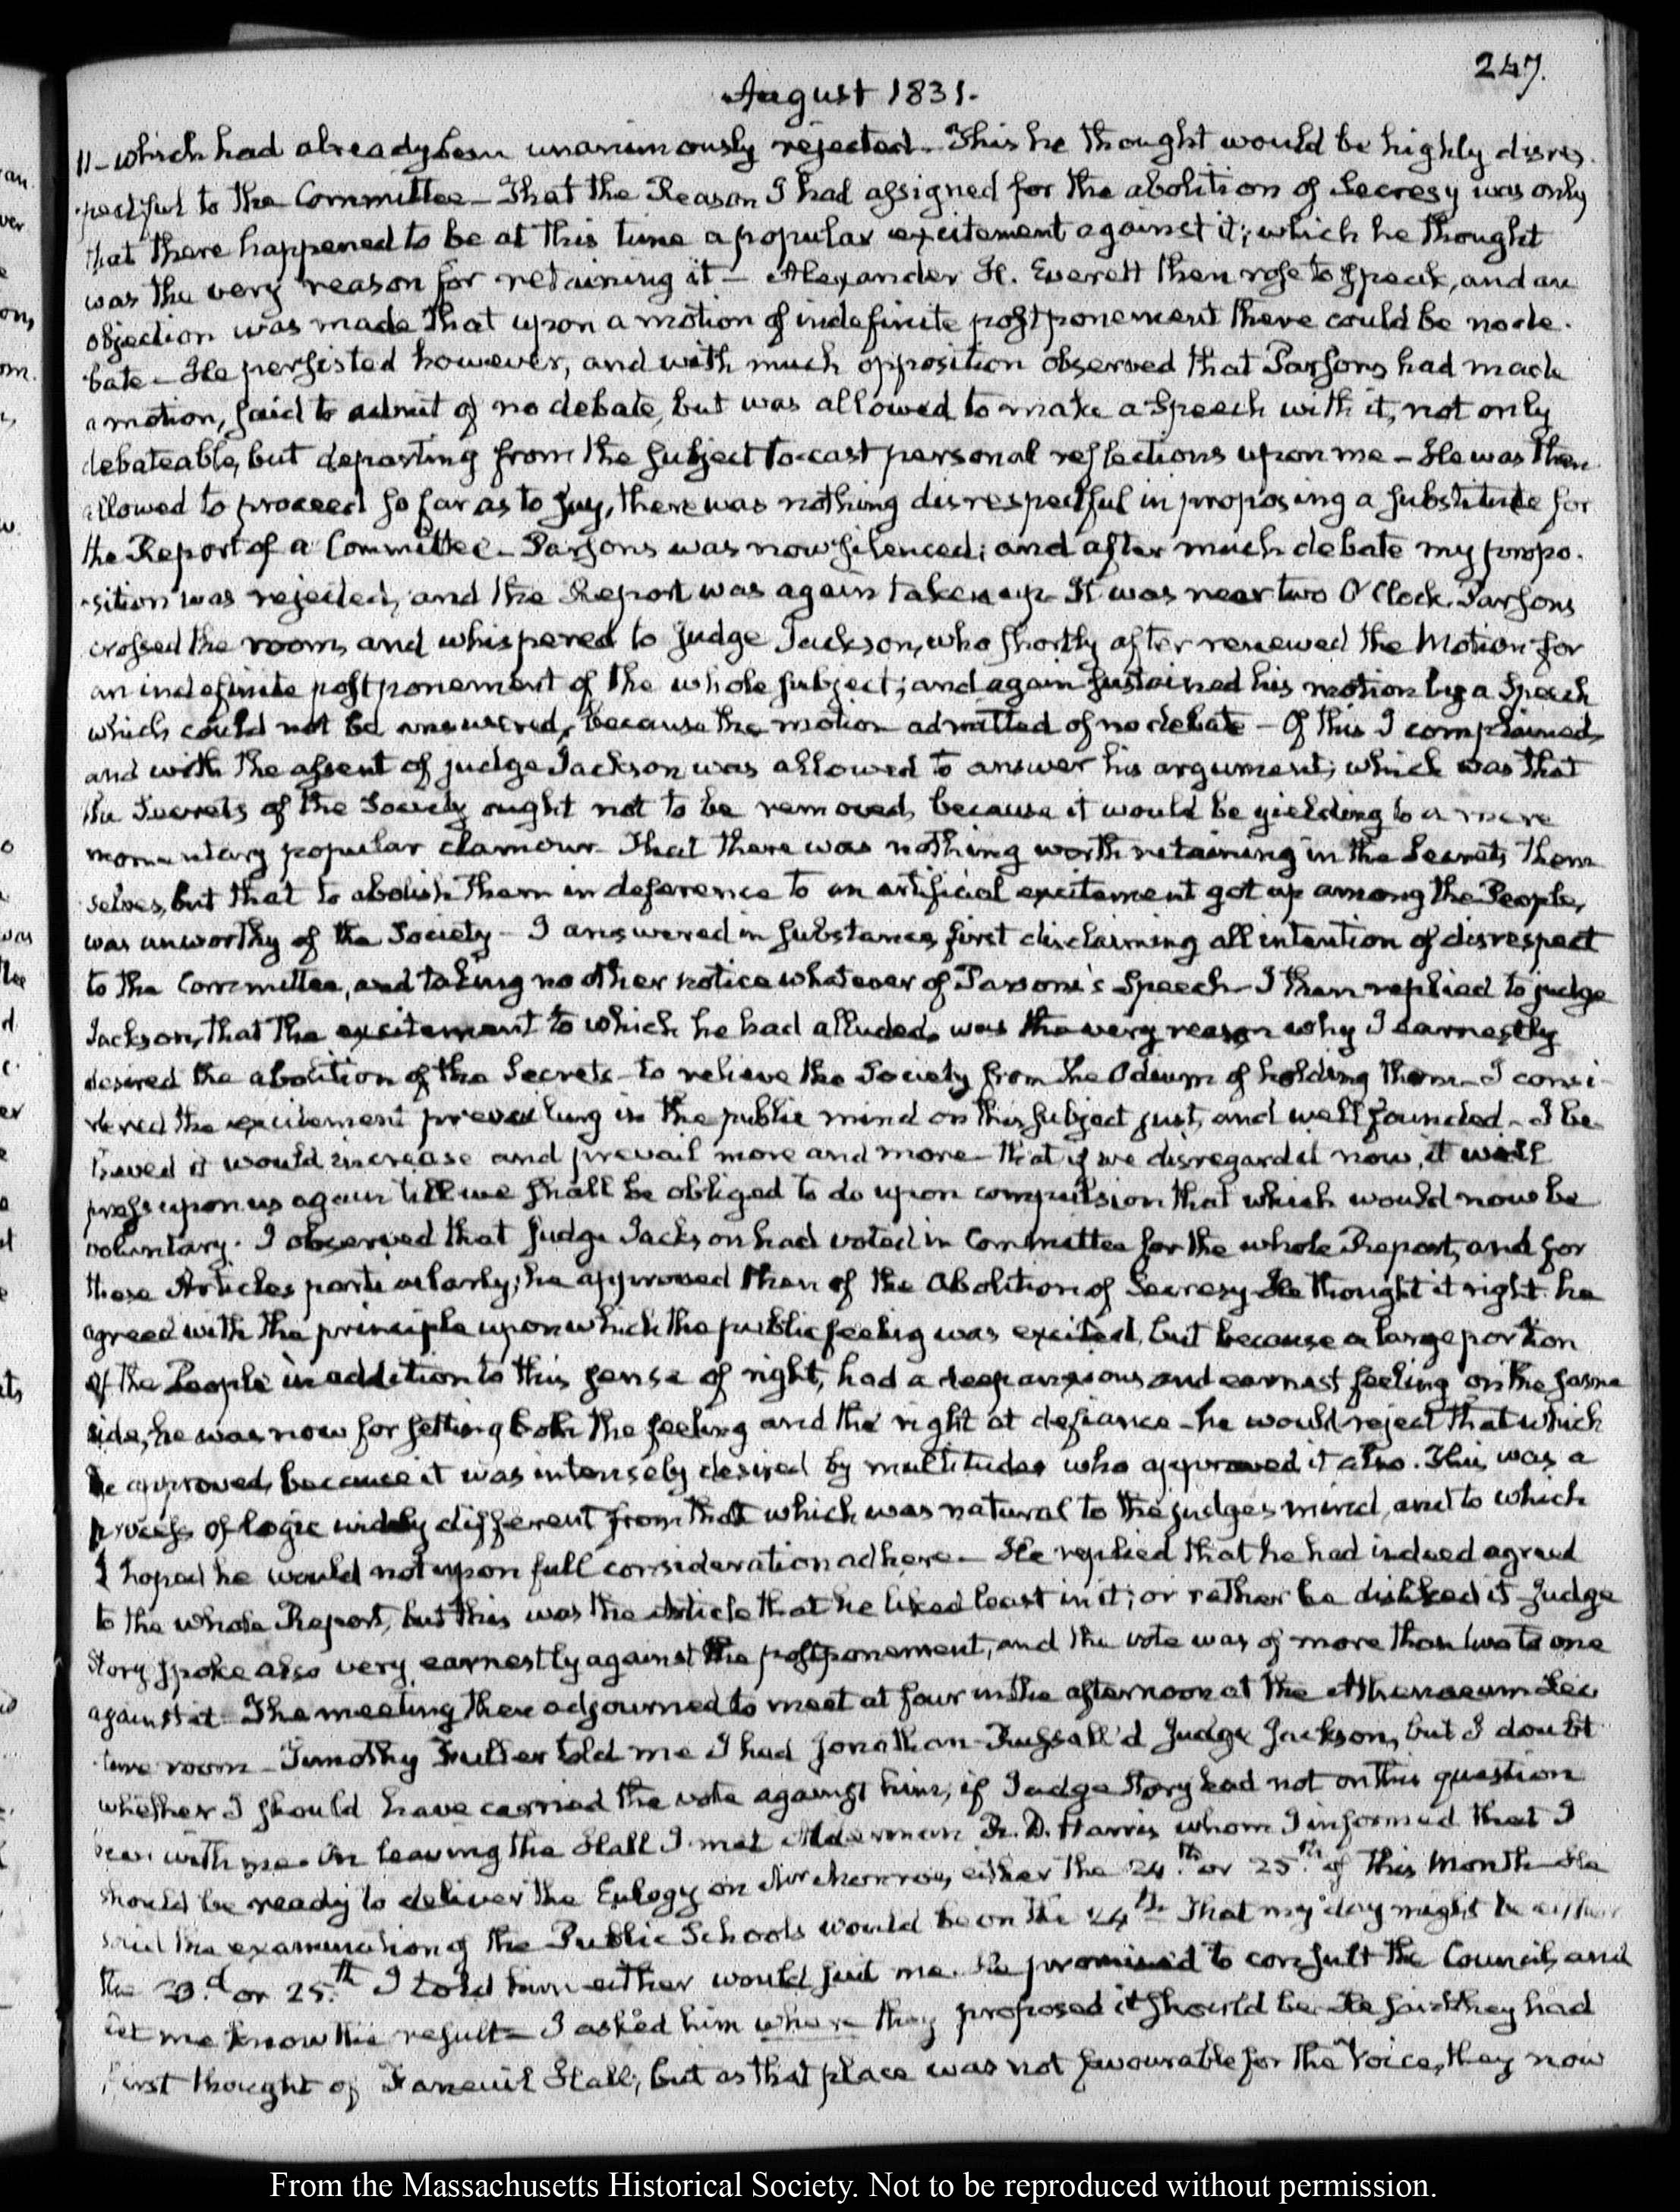 247.
August 1831.
11 - which had already been unanimously rejected. This he thought would be highly disres-
pectful to the Committee - That the Reason I had assigned for the abolition of Secresy was only
that there happened to be at this time a popular excitement against it; which he thought
was the very reason for retaining it - Alexander H. Everett then rose to speak, and an
objection was made that upon a motion of indefinite postponement there could be no de-
bate - He persisted however, and with much opposition observed that Parsons had made
a motion, said to admit of no debate, but was allowed to make a Speech with it, not only
debateable, but departing from the subject to cast personal reflections upon me - He was then
allowed to proceed so far as to say, there was nothing disrespectful in proposing a substitute for
the Report of a Committee - Parsons was now silenced; and after much debate my propo-
-sition was rejected, and the Report was again taken up. It was near two O'Clock. Parsons
crossed the room, and whispered to Judge Jackson, who shortly after renewed the Motion for
an indefinite postponement of the whole subject; and again sustained his motion by a Speech
which could not be answered, because the motion admitted of no debate - Of this I complained,
and with the assent of judge Jackson was allowed to answer his argument; which was that
the Secrets of the Society ought not to be removed, because it would be yielding to a mere
momentary popular clamour. That there was nothing worth retaining in the Secrets them
selves, but that to abolish them in deference to an artificial excitement got up among the People,
was unworthy of the Society - I answered in substance, first disclaiming all intention of disrespect
to the Committee, and taking no other notice whatever of Parsons's Speech - I then replied to judge
Jackson, that the excitement to which he had alluded, was the very reason why I earnestly
desired the abolition of the Secrets - to relieve the Society from the Odium of holding them - I consi-
dered the excitement prevailing in the public mind on this subject just, and well founded - I be-
lieved it would increase and prevail more and more - that if we disregard it now, it will
press upon us again till we shall be obliged to do upon compulsion that which would now be
voluntary. I observed that Judge Jackson had voted in Committee for the whole Report, and for
these Articles particularly; he approved then of the Abolition of Secresy - He thought it right - he
agreed with the principle upon which the public feeling was excited, but because a large portion
of the People in addition to this sense of right, had a deep anxious and earnest feeling on the same
side, he was now for setting both the feeling and the right at defiance - he would reject that which
he approved, because it was intensely desired by multitudes who approved it also. This was a
process of logic widely different from that which was natural to the judges mind, and to which
I hoped he would not upon full consideration adhere - He replied that he had indeed agreed
to the whole Report, but this was the Article that he liked least in it; or rather he disliked it - Judge
Story spoke also very earnestly against the postponement, and the vote was of more than two to one
against it. The meeting then adjourned to meet at four in the afternoon at the Athenaeum Lec
-ture room - Timothy Fuller told me I had Jonathan-Russell'd Judge Jackson, but I doubt
whether I should have carried the vote against him, if Judge Story had not on this question
been with me. On leaving the Hall I met Alderman R. D. Harris whom I informed that I
should be ready to deliver the Eulogy on Mr Monroe, either the 24.th or 25.th of this Month - He
said the examination of the Public Schools would be on the 24th That my day might be either
the 23.d or 25.th I told him either would suit me. He promised to consult the Council, and
let me know the result - I asked him where they proposed it should be. He said they had
first thought of Faneuil Hall; but as that place was not favourable for the Voice, they now
From the Massachusetts Historical Society. Not to be reproduced without permission.